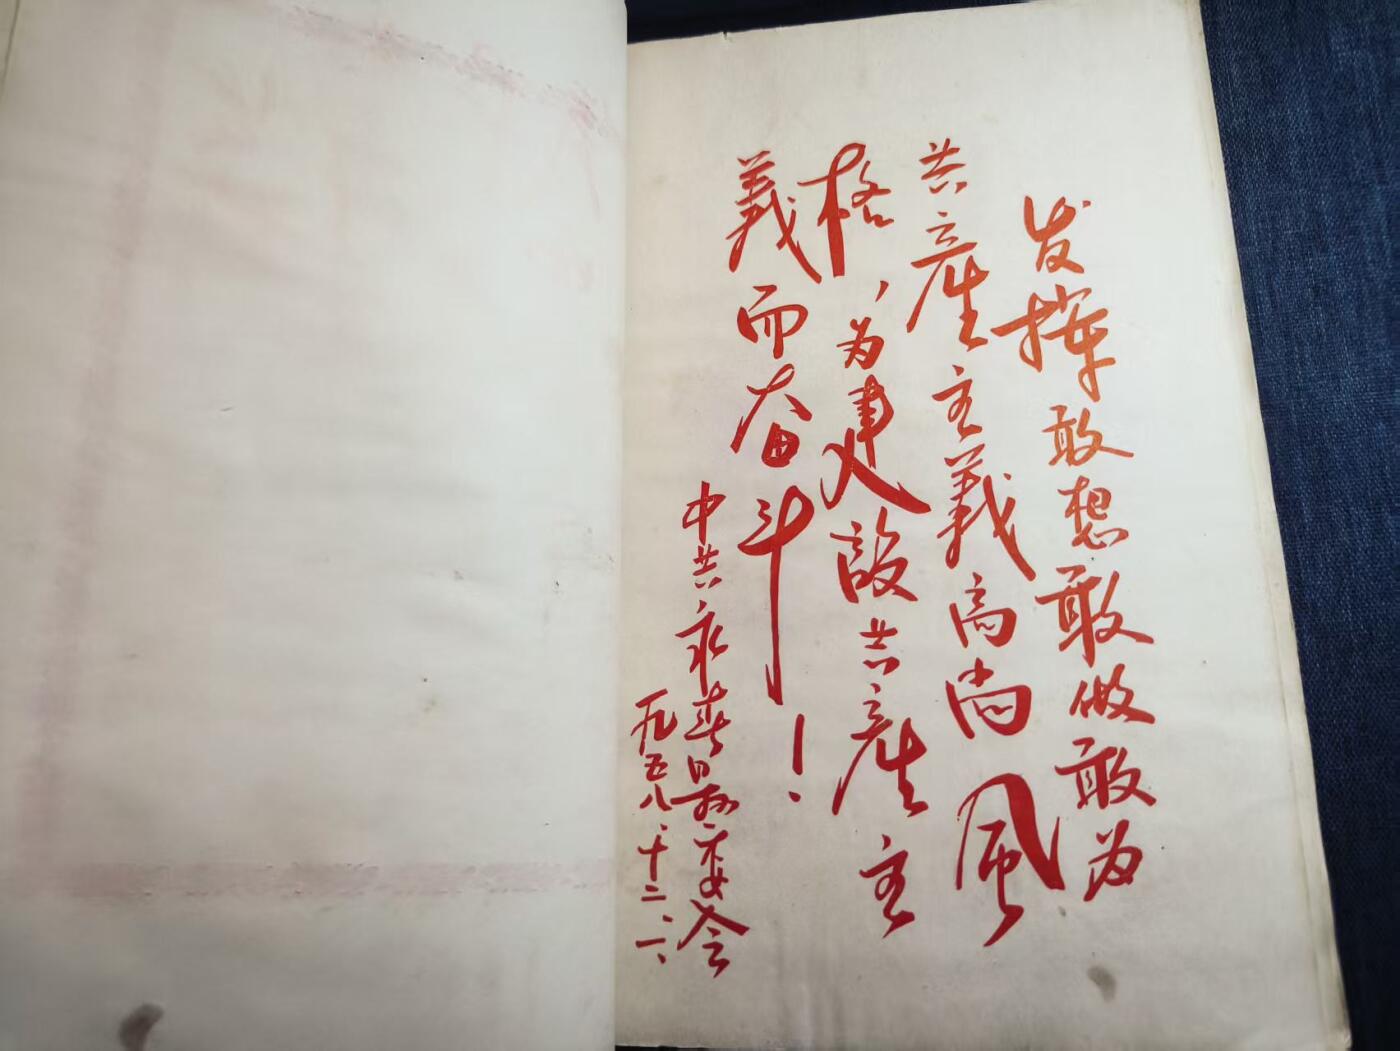 发挥敢想敢做敢为
共产主義高尚風
格，为建設共产主
義而奋斗！
中共永春县委会
一九五八、十二、一、